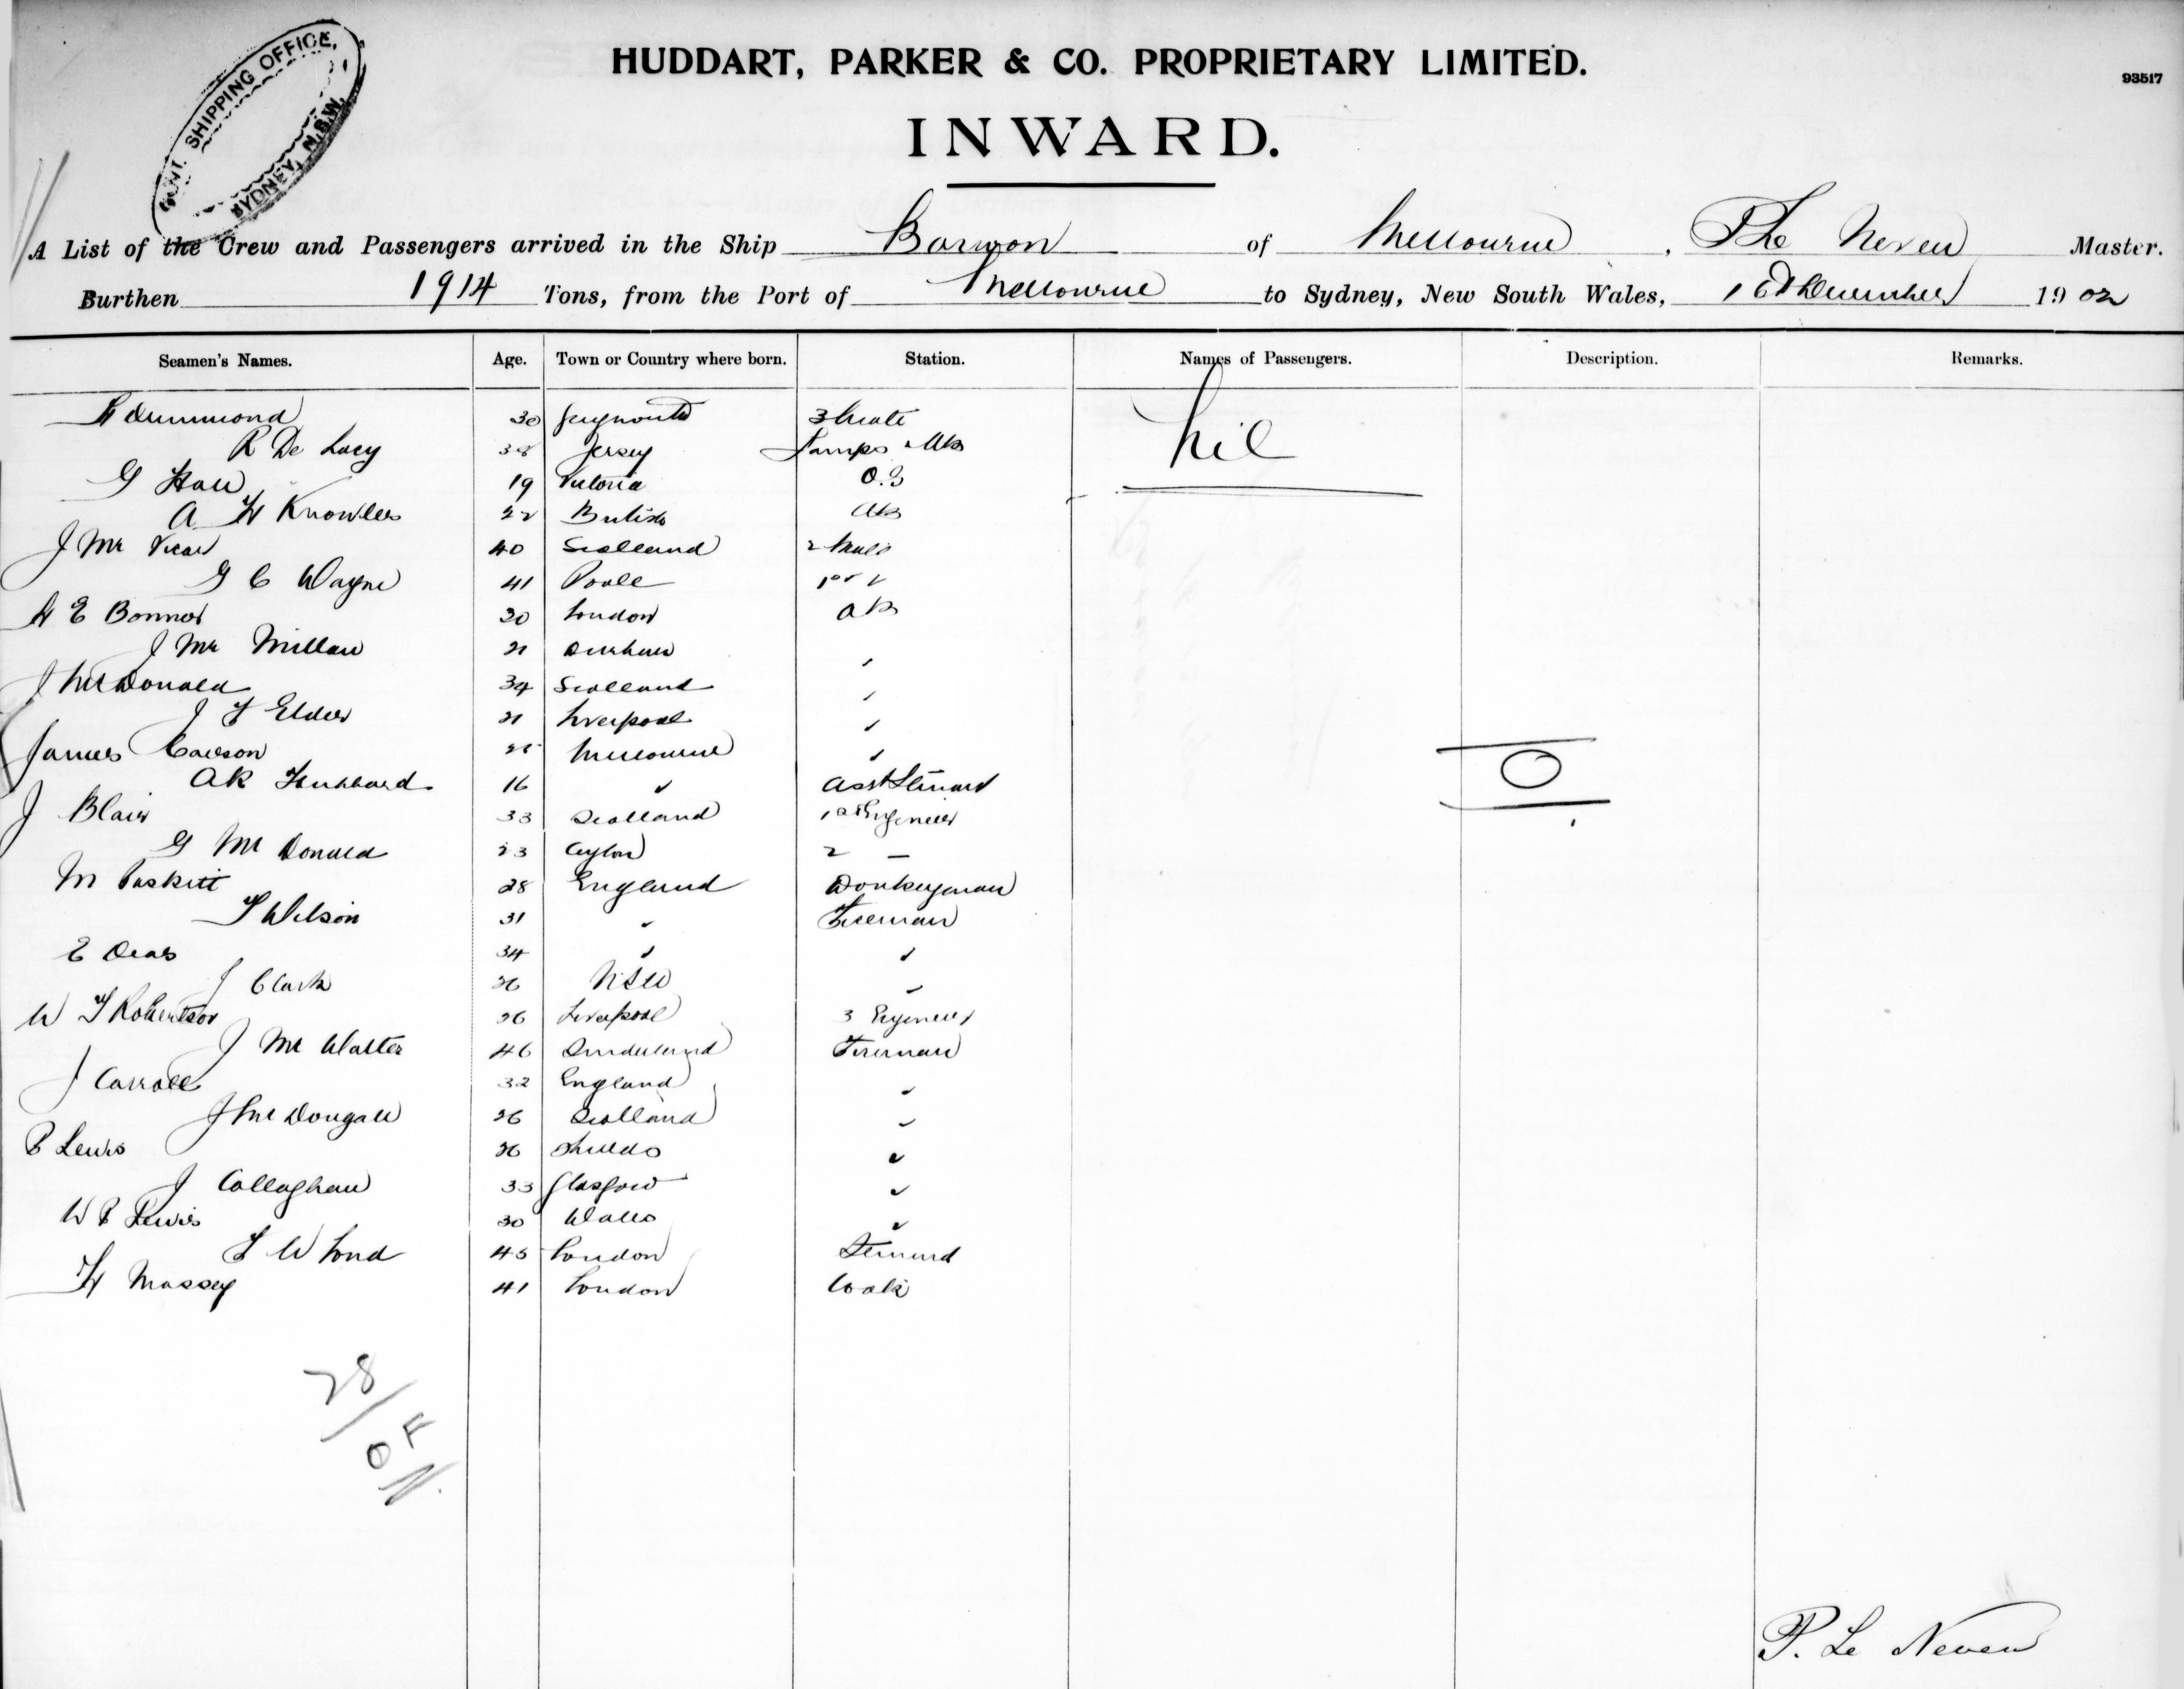 GOVT. SHIPPING OFFICE,
SYDNEY, N.S.W.
HUDDART, PARKER & CO. PROPRIETARY LIMITED.
93517
INWARD.
A List of the Crew and Passengers arrived in the Ship Barwon of Melbourne, P Le Neveu Master.
Burthen 1914 Tons, from the Port of Melbourne to Sydney, New South Wales, 16th December 1902
Seamen's Names. Age. Town or Country where born. Station. Names of Passengers. Description. Remarks.
H Drummond 30 3 Mate nil
R De Lacy 38 Jersey Lamps & AB
G Hall 19 Victoria O.S
A H Knowles 22 British AB
J Mc Vicar 40 Scotland 2 Mate
G C Wayne 41 Poole
H E Bonner 20 London AB
J Mc Millan 21 Durham "
J McDonald 34 Scotland "
J F Elder 21 Liverpool "
James Carson Melbourne "
AR Hubbard 16 " Asst Steward O
J Blair 33 Scotland 1st Engineer
G Mc Donald 23 Ceylon 2 —
M Paskitt 28 England Donkeyman
T Wilson 31 " Fireman
E Dear 34 " "
J Clark 26 NSW "
W T Robertson 26 Liverpool 3 Engineer
J Mc Walter 46 Sunderland Fireman
J Carroll 32 England "
J McDougall 26 Scotland "
P Lewis 26 Shields "
J Callaghan 33 Glasgow "
W P Lewis 30 Wales "
F W Lond 45 London Steward
H Massey 41 London Cook
28
P. Le Neveu